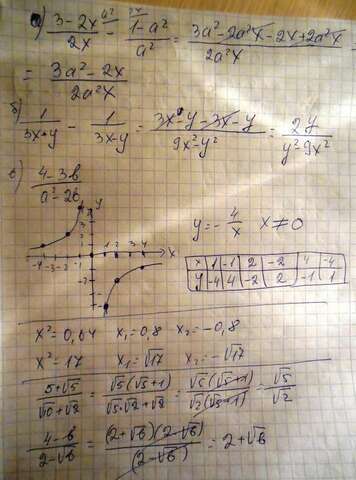 а) (3-2x)/2x - (1-a²)/a² = (3a²-2a²x-2x+2a²x)/2a²x
= (3a²-2x)/2a²x
б) 1/(3x+y) - 1/(3x-y) = (3x-y-3x-y)/(9x²-y²) = 2y/(y²-9x²)
в) (4-3b)/(a²-2b)
y
3
2
-4 -3 -2 -1 1 2 3 4 x
-2
y=-4/x x≠0
x 1 -1 2 -2 4 -4
y -4 4 -2 2 -1 1
x²=0,64 x₁=0,8 x₂=-0,8
x²=17 x₁=√17 x₂=-√17
(5+√5)/(√10+√2) = √5(√5+1)/(√5·√2+√2) = √5(√5+1)/√2(√5+1) = √5/√2
(4-b)/(2-√b) = (2+√b)(2-√b)/(2-√b) = 2+√b